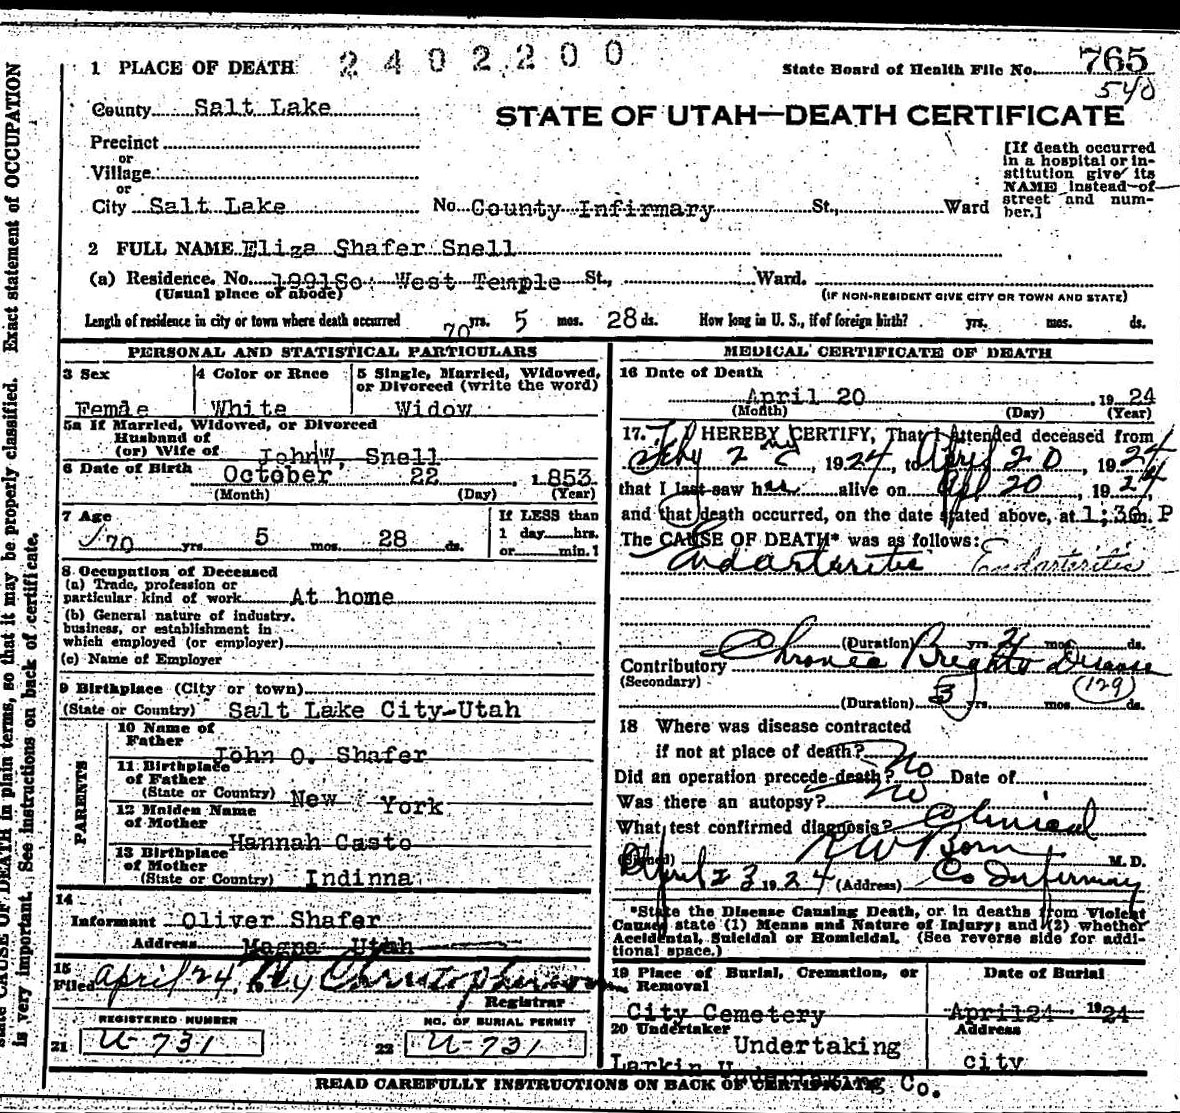 2402200
1 PLACE OF DEATH
State Board of Health File No. 765
540
County Salt Lake
STATE OF UTAH—DEATH CERTIFICATE
Precinct
or
Village
or
City Salt Lake No. County Infirmary St., Ward
[If death occurred
in a hospital or in-
stitution give its
NAME instead of
street and num-
ber.]
2 FULL NAME Eliza Shafer Snell
(a) Residence. No. 1991 So. West Temple St., Ward.
(Usual place of abode)
(IF NON-RESIDENT GIVE CITY OR TOWN AND STATE)
Length of residence in city or town where death occurred 70 yrs. 5 mos. 28 ds. How long in U. S., if of foreign birth? yrs. mos. ds.
PERSONAL AND STATISTICAL PARTICULARS
3 Sex
4 Color or Race
5 Single, Married, Widowed,
or Divorced (write the word)
Femále White Widow
5a If Married, Widowed, or Divorced
Husband of
(or) Wife of John W. Snell
6 Date of Birth October 22, 1853
(Month) (Day) (Year)
7 Age
70 yrs. 5 mos. 28 ds.
If LESS than
1 day hrs.
or min.?
8 Occupation of Deceased
(a) Trade, profession or
particular kind of work At home
(b) General nature of industry,
business, or establishment in
which employed (or employer)
(c) Name of Employer
9 Birthplace (City or town)
(State or Country) Salt Lake City-Utah
PARENTS
10 Name of
Father John O. Shafer
11 Birthplace
of Father
(State or Country) New York
12 Maiden Name
of Mother Hannah Casto
13 Birthplace
of Mother
(State or Country) Indinna
14
Informant Oliver Shafer
Address Magna Utah
15
Filed April 24,
Registrar
REGISTERED NUMBER
21 U-731
NO. OF BURIAL PERMIT
22 U-731
MEDICAL CERTIFICATE OF DEATH
16 Date of Death
April 20, 1924
(Month) (Day) (Year)
17. I HEREBY CERTIFY, That I attended deceased from
Feby 2nd, 1924, to April 20, 1924
that I last saw her alive on Apl 20, 1924,
and that death occurred, on the date stated above, at 1;30m. P
The CAUSE OF DEATH* was as follows:
Endarteritis Endarteritis
(Duration) yrs. mos. ds.
Contributory Chronic Brights Disease
(Secondary)
(129)
(Duration) 3 yrs. mos. ds.
18 Where was disease contracted
if not at place of death?
Did an operation precede death? No Date of
Was there an autopsy? No
What test confirmed diagnosis? Clinical
(Signed) M. D.
April 23 1924 (Address) Co Infirmary
*State the Disease Causing Death, or in deaths from Violent
Causes state (1) Means and Nature of Injury; and (2) whether
Accidental, Suicidal or Homicidal. (See reverse side for addi-
tional space.)
19 Place of Burial, Cremation, or
Removal
Date of Burial
City Cemetery April 24 1924
20 Undertaker
Address
Undertaking
Larkin Undertaking Co.
city
READ CAREFULLY INSTRUCTIONS ON BACK OF CERTIFICATE
state CAUSE OF DEATH in plain terms, so that it may be properly classified. Exact statement of OCCUPATION
is very important. See instructions on back of certificate.